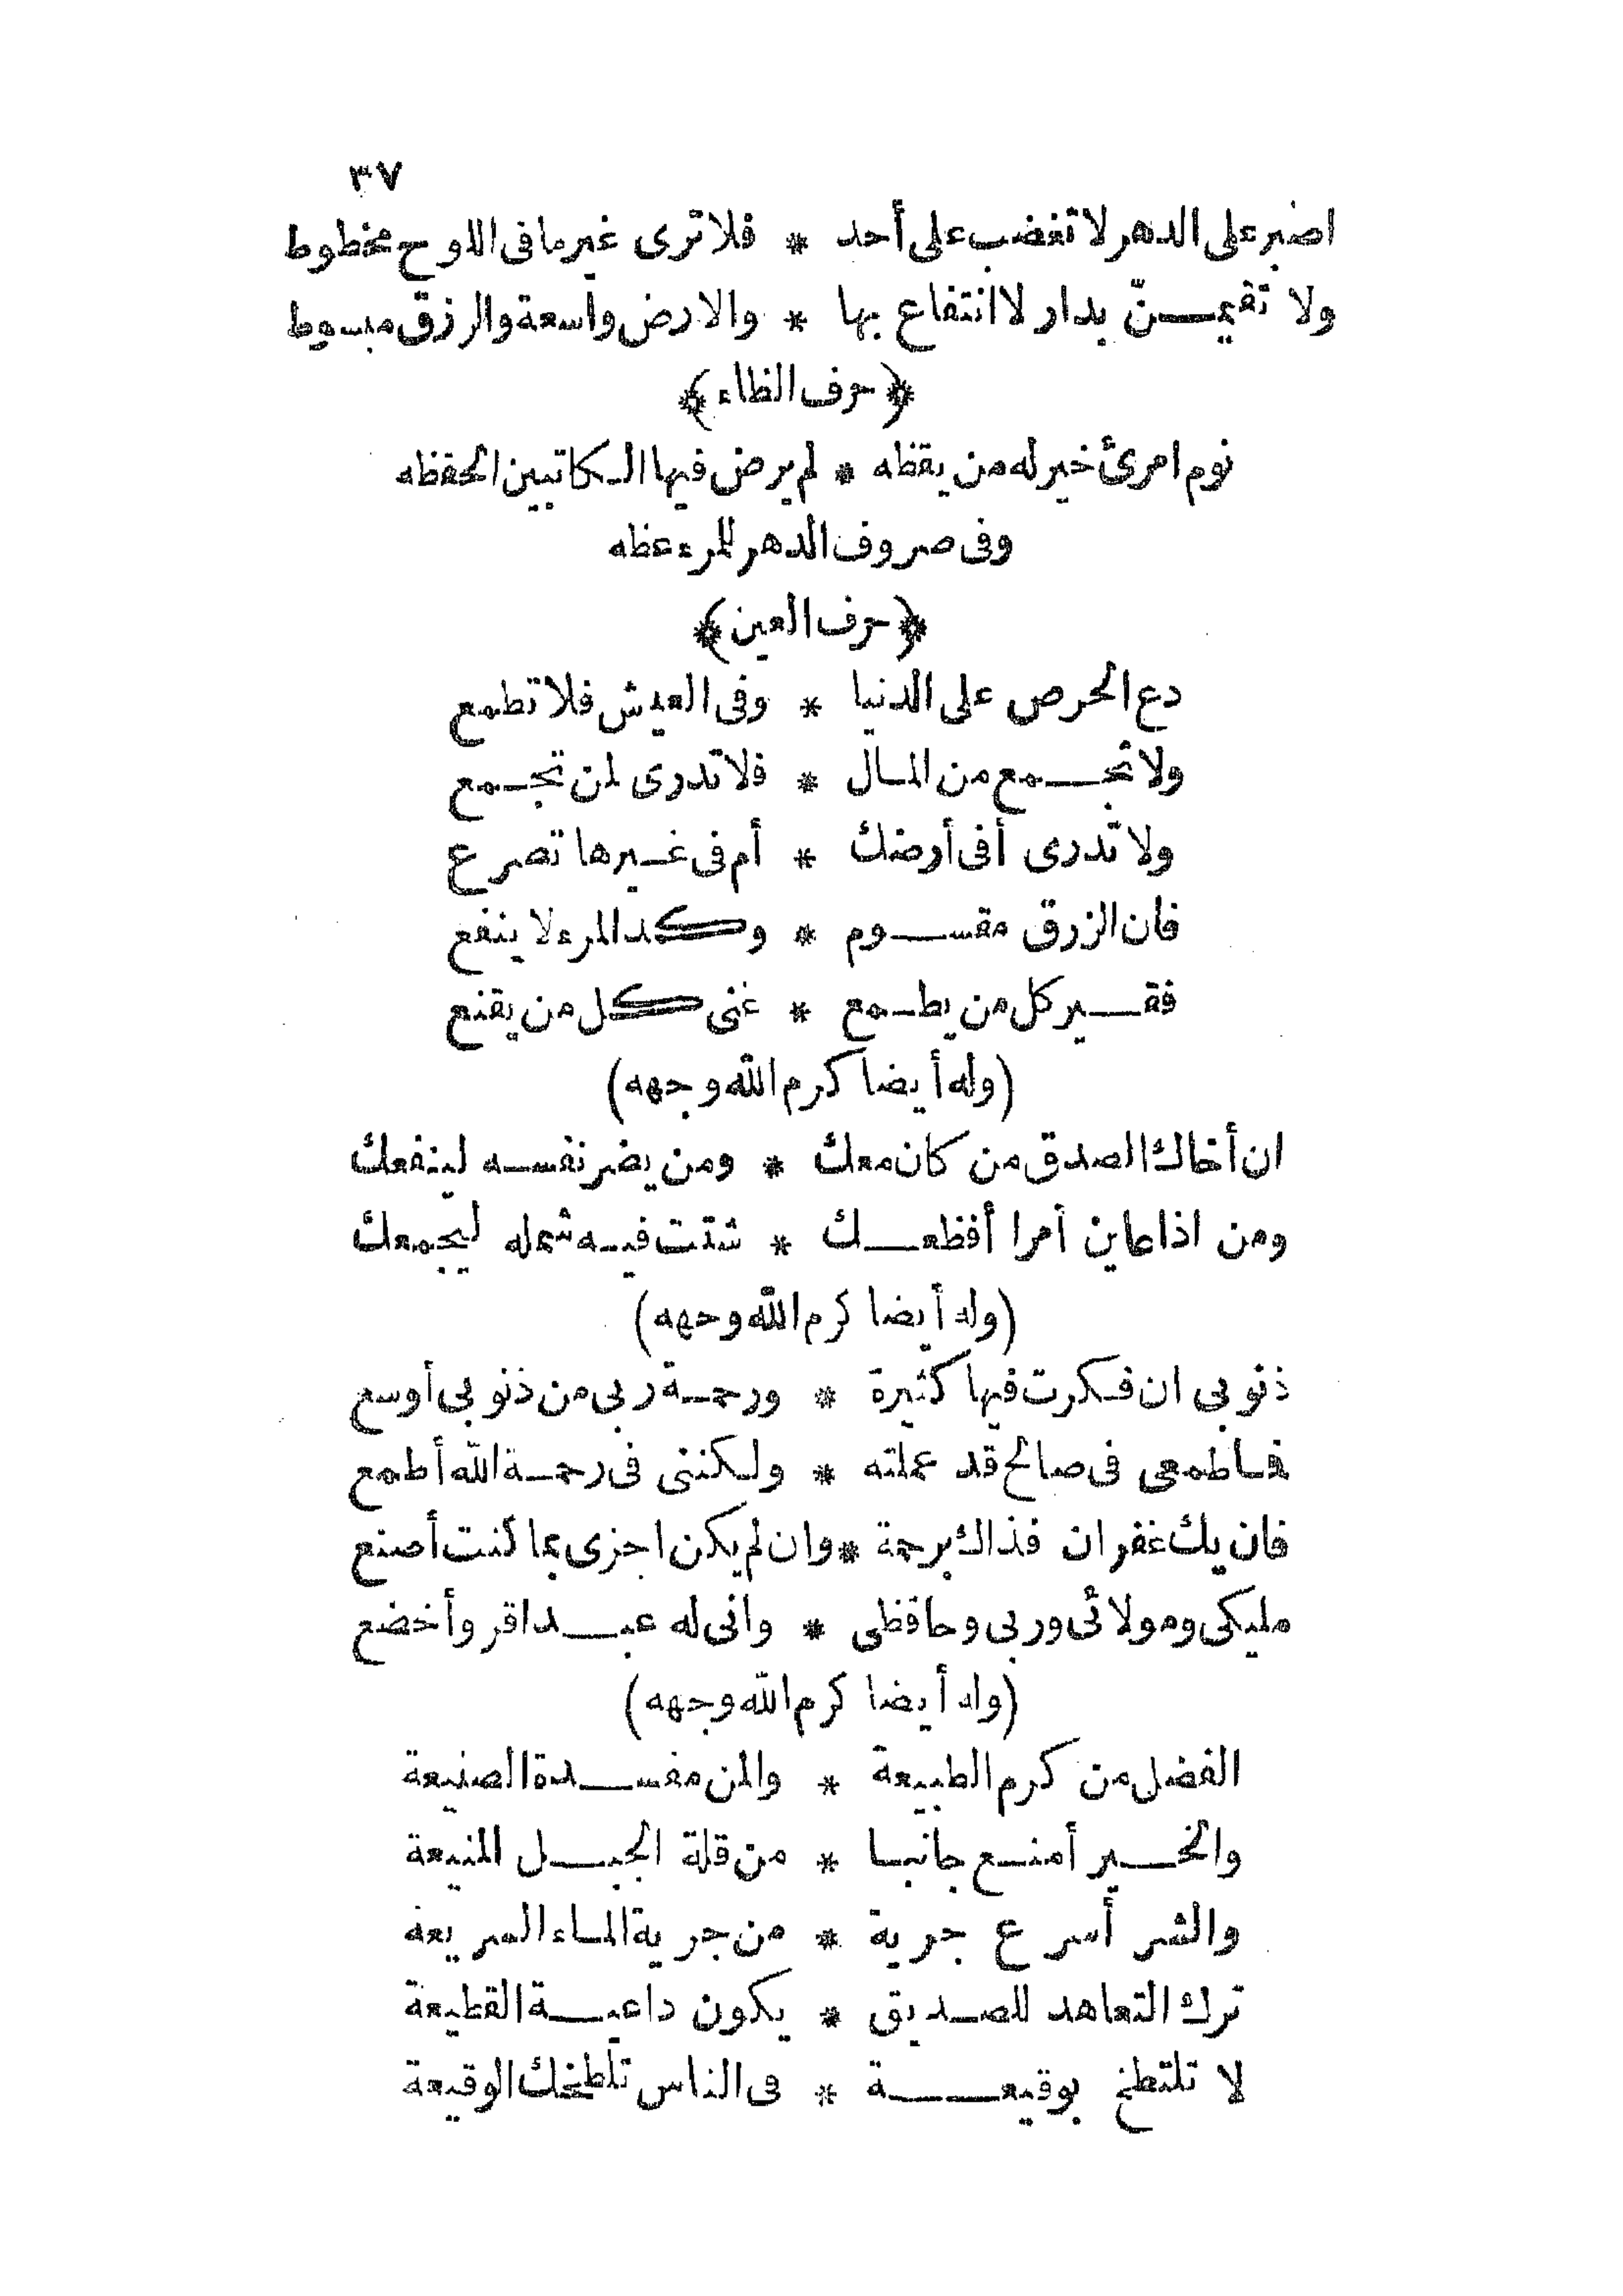 ٣٧
اصبر على الدهر لا تغضب على أحد * فلا ترى غير ما فى اللوح مخطوط
ولا تقيمنّ بدار لا انتفاع بها * والارض واسعة والرزق مبسوط
﴿حرف الظاء﴾
نوم امرئ خير له من يقظه * لم يرض فيها الكاتبين الحفظه
وفى صروف الدهر للمرء عظه
﴿حرف العين﴾
دع الحرص على الدنيا * وفى العيش فلا تطمع
ولا تجمع من المال * فلا تدرى لمن تجمع
ولا تدرى أفى أرضك * أم فى غيرها تصرع
فان الرزق مقسوم * وكد المرء لا ينفع
فقير كل من يطمع * غنى كل من يقنع
(وله أيضا كرم الله وجهه)
ان أخاك الصدق من كان معك * ومن يضر نفسه لينفعك
ومن اذا عاين أمرا أفظعك * شتت فيه شمله ليجمعك
(وله أيضا كرم الله وجهه)
ذنوبى ان فكرت فيها كثيرة * ورحمة ربى من ذنوبى أوسع
فما طمعى فى صالح قد عملته * ولكننى فى رحمة الله أطمع
فان يك غفران فذاك برحمة * وان لم يكن اجزى بما كنت أصنع
مليكى ومولائى وربى وحافظى * وانى له عبد اقر وأخضع
(وله أيضا كرم الله وجهه)
الفضل من كرم الطبيعة * والمن مفسدة الصنيعة
والخير أمنع جانبا * من قلة الجبل المنيعة
والشر أسرع جرية * من جرية الماء السريعه
ترك التعاهد للصديق * يكون داعية القطيعة
لا تلتطخ بوقيعة * فى الناس تلطخك الوقيعة